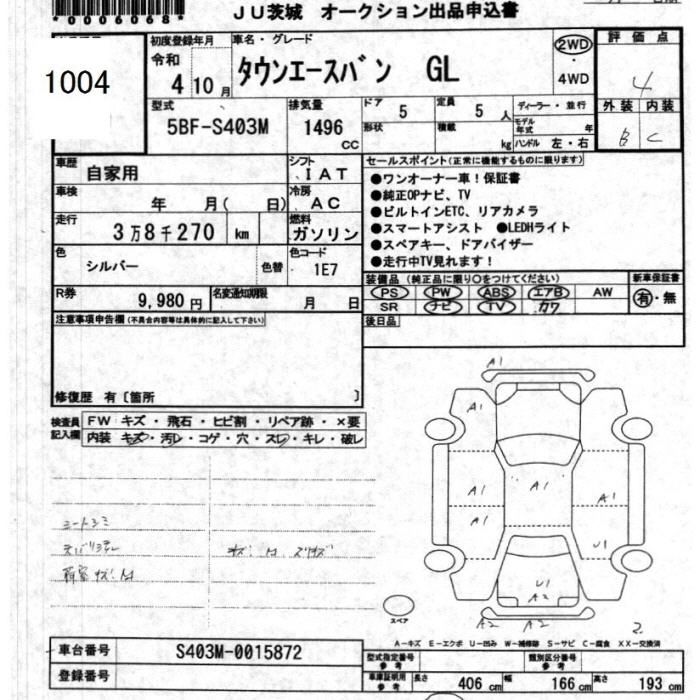 *0006068*
JU茨城 オークション出品申込書
1004
初度登録年月
令和
4 10月
車名・グレード
タウンエースバン GL
2WD
4WD
評価点
4
外装 内装
B C
型式
5BF-S403M
排気量
1496 CC
ドア 5
定員 5人
形状
積載 kg
ディーラー・並行
モデル年式 年
ハンドル 左・右
車歴
自家用
シフト
IAT
車検
年 月( 日)
冷房
AC
走行
3万8千270 km
燃料
ガソリン
色
シルバー
色替
色コード
1E7
R券
9,980円
名変通知期限
月 日
セールスポイント(正常に機能するものに限ります)
●ワンオーナー車!保証書
●純正OPナビ、TV
●ビルトインETC、リアカメラ
●スマートアシスト ●LEDHライト
●スペアキー、ドアバイザー
●走行中TV見れます!
装備品(純正品に限り○をつけてください)
PS PW ABS エアB AW
SR ナビ TV カワ
新車保証書
有・無
後日品
注意事項申告欄(不具合内容等は具体的に記入して下さい)
修復歴 有〔箇所 〕
検査員記入欄
FW キズ・飛石・ヒビ割・リペア跡・×要
内装 キズ・汚レ・コゲ・穴・スレ・キレ・破レ
シートシミ
荷室キズ
A1
A1
A1
A1
A1
A1
U1
U1
A2
A2
A2
スペア
2.
A-キズ E-エクボ U-凹み W-補修跡 S-サビ C-腐食 XX-交換済
車台番号
S403M-0015872
登録番号
型式指定番号参考
類別区分番号参考
車庫証明用参考
長さ 406 cm 幅 166 cm 高さ 193 cm